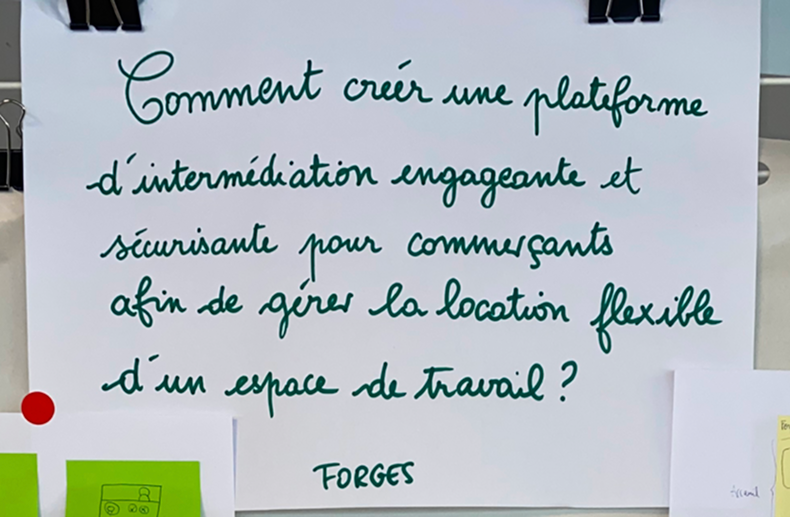 Comment créer une plateforme
d'intermédiation engageante et
sécurisante pour commerçants
afin de gérer la location flexible
d'un espace de travail ?
FORGES